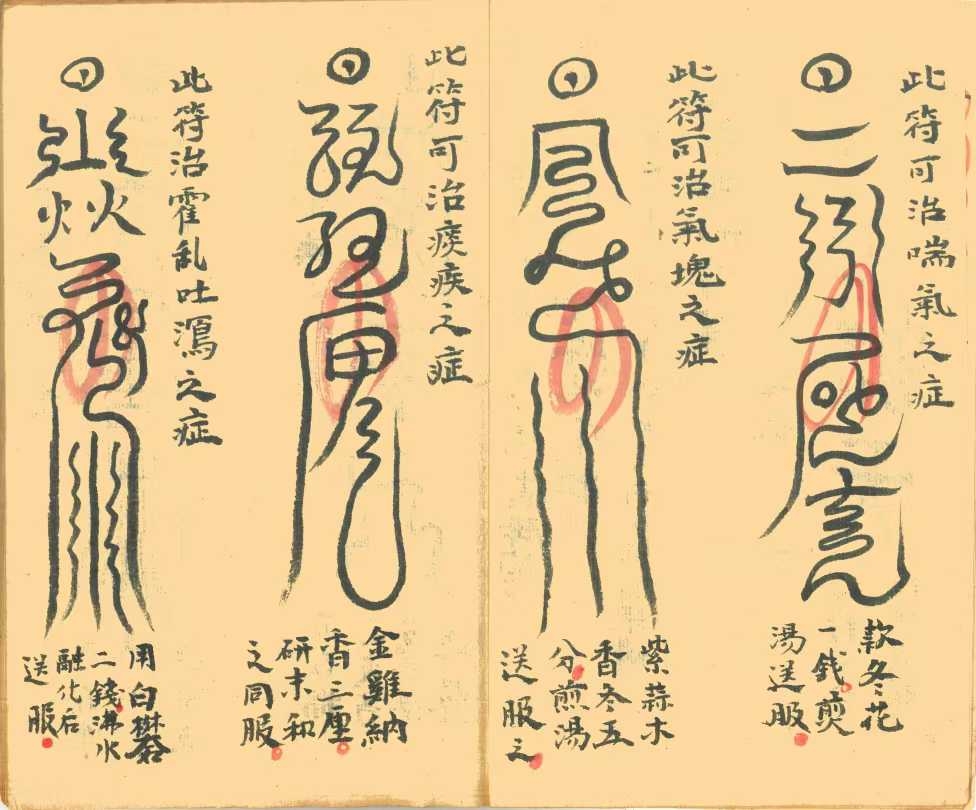 此符可治喘氣之症
款冬花
一錢煎
湯送服
此符可治氣塊之症
紫蒜木
香冬五
分煎湯
送服之
此符可治疾疾之症
金雞納
香二厘
研末和
之同服
此符治霍乱吐瀉之症
用白礬
二錢沸水
融化后
送服